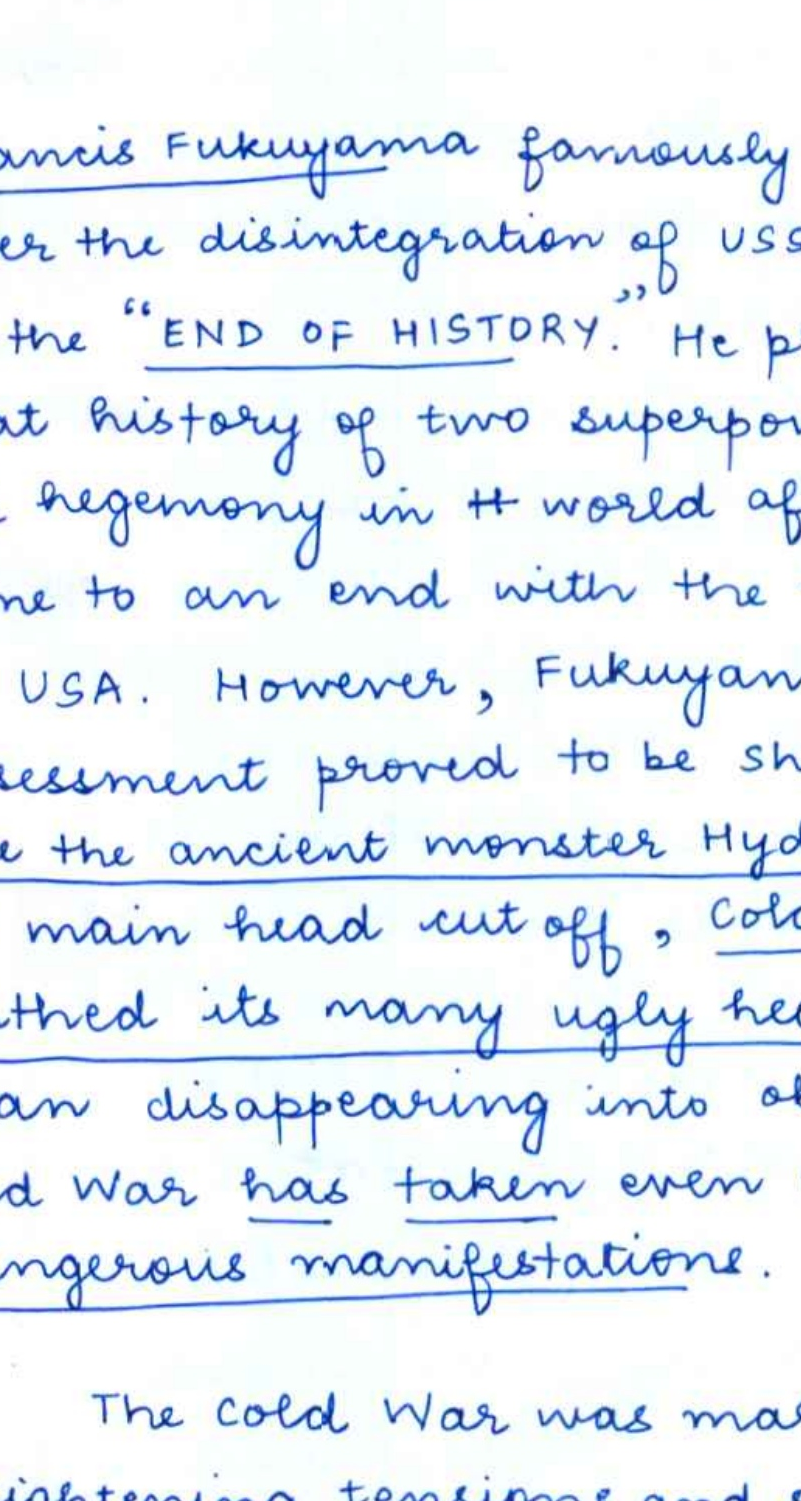 ancis Fukuyama famously
er the disintegration of USS
the “END OF HISTORY.” He p
at history of two superpow
hegemony in # world af
me to an end with the
USA. However, Fukuyam
sessment proved to be sh
e the ancient monster Hyd
main head cut off, Cold
athed its many ugly hea
an disappearing into ob
d War has taken even
angerous manifestations.
The Cold War was mar
ightening tensions and